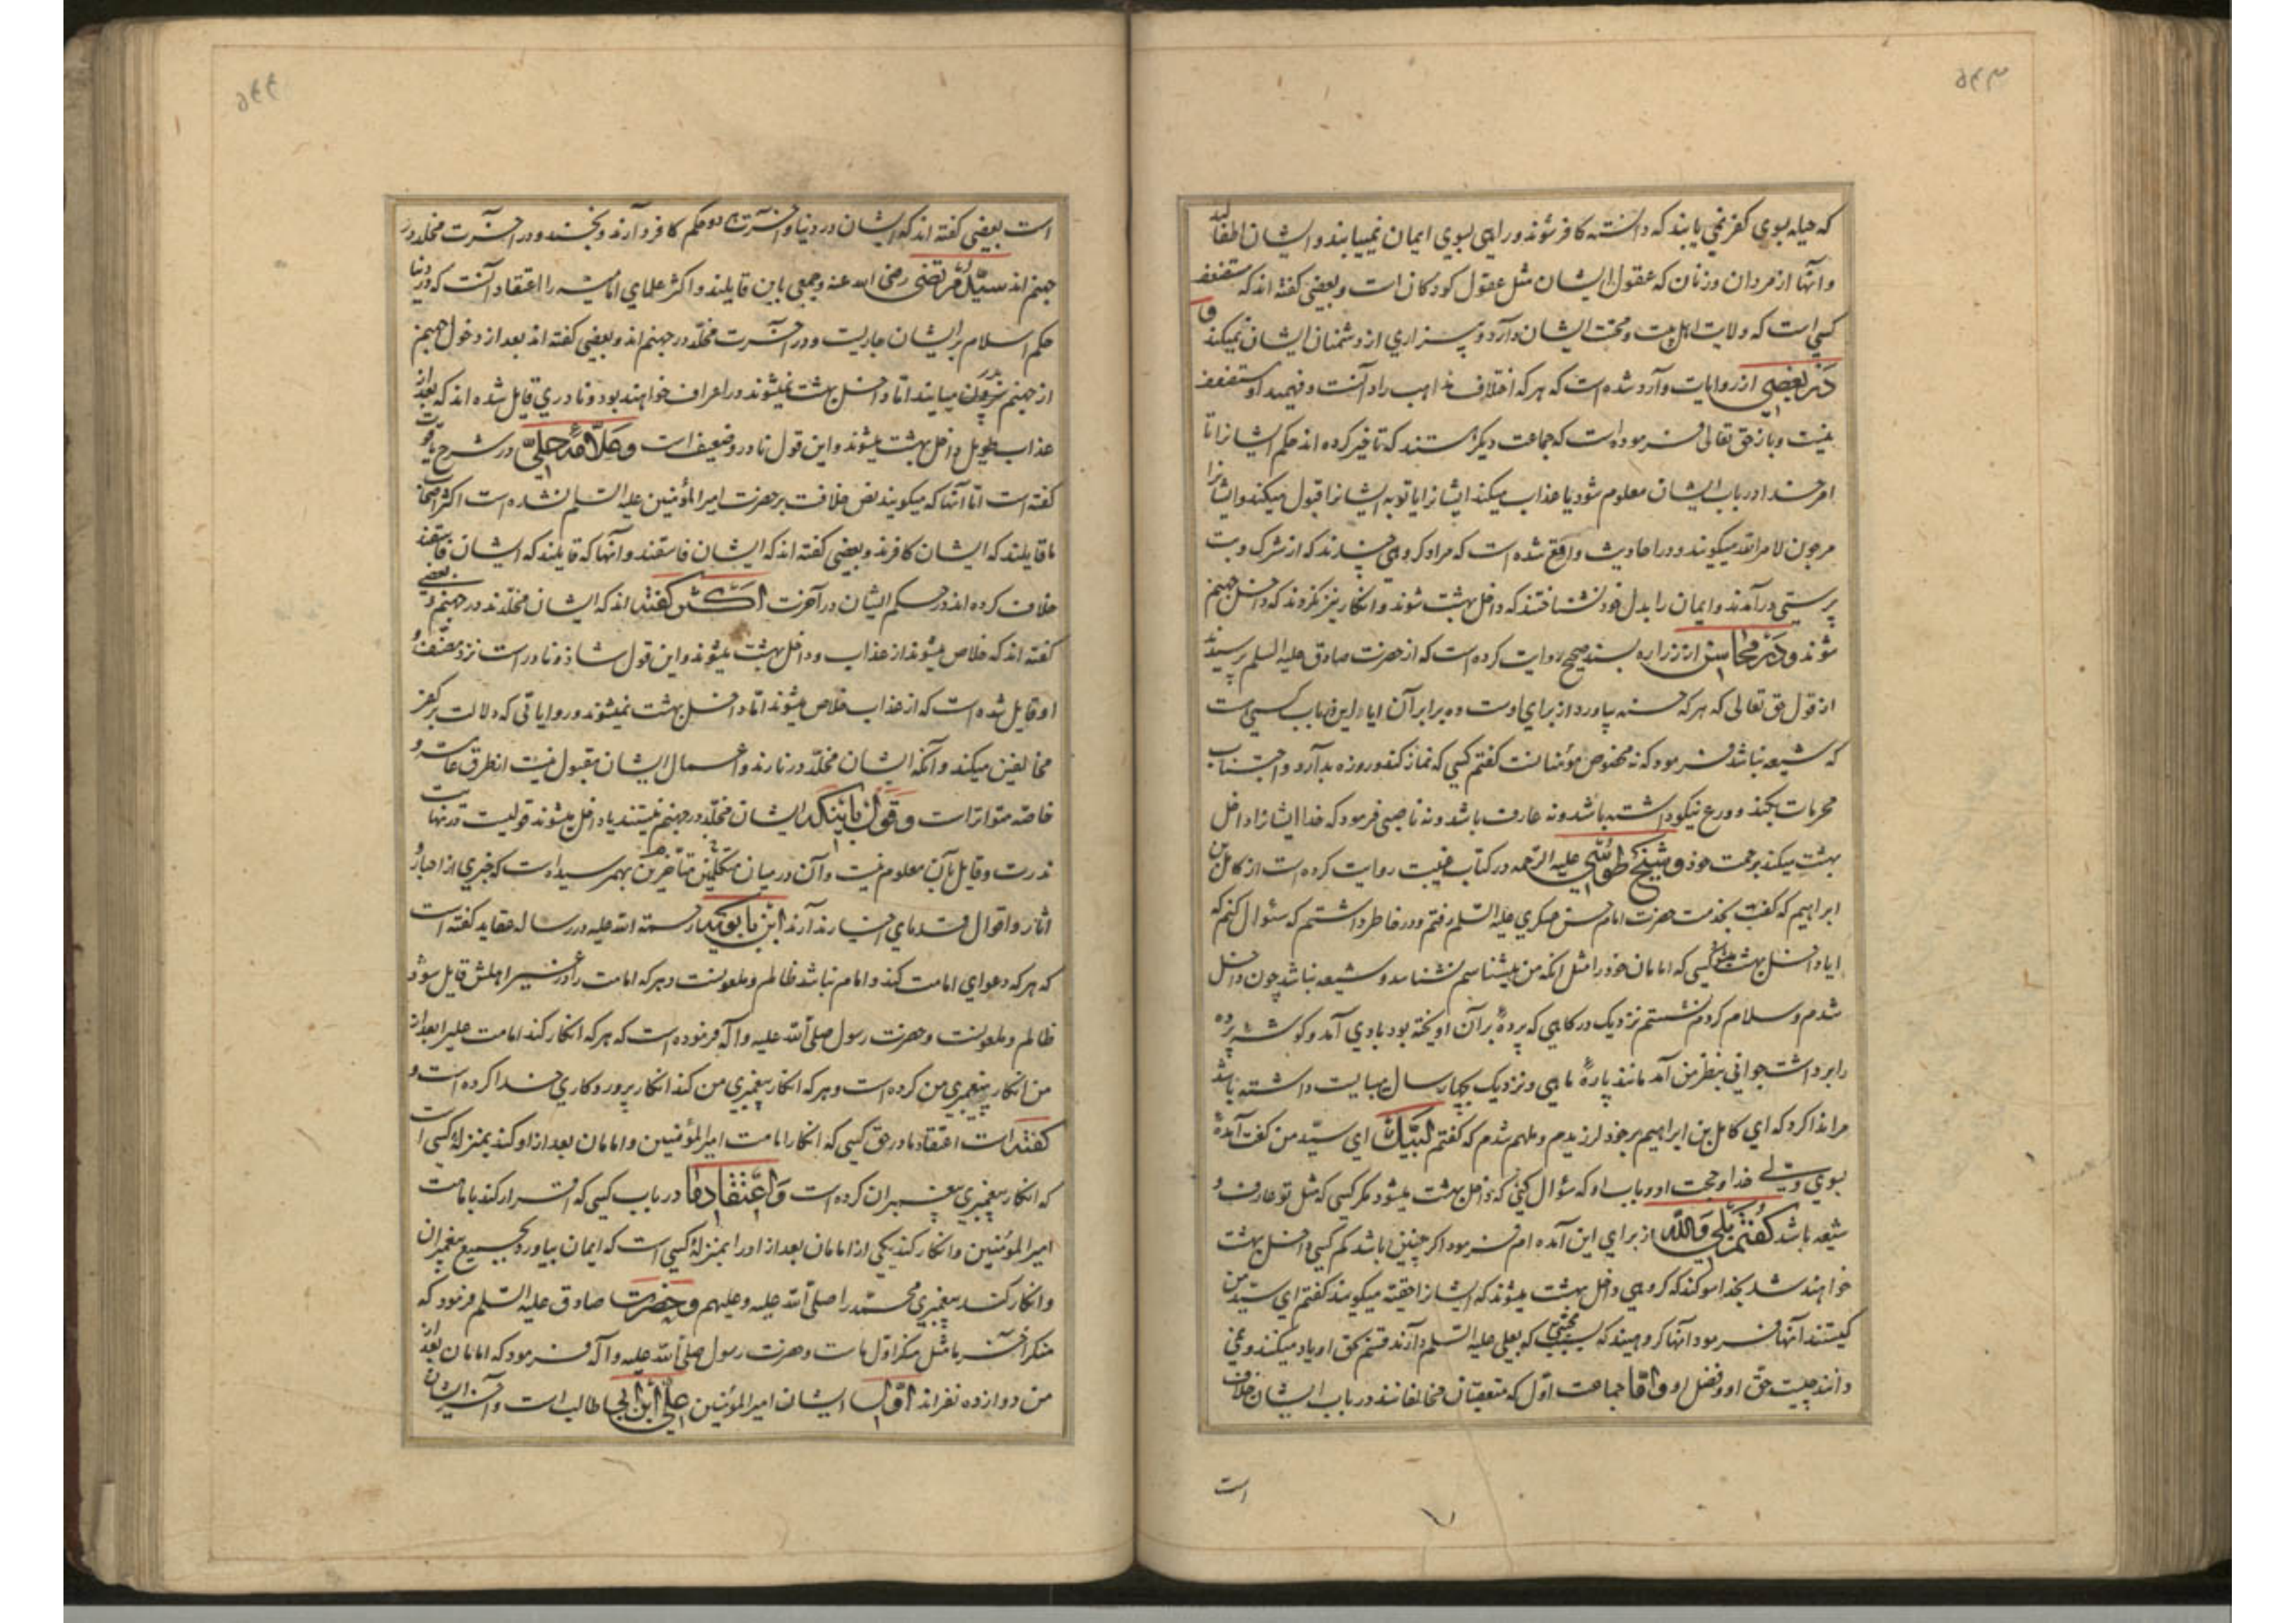 ۵۴۳
که حیله بسوی کفر نمی یابند که دانسته کافر شوند و راهی بسوی ایمان نمییابند و ایشان اطفالند
و آنها از مردان و زنان که عقول ایشان مثل عقول کودکان است و بعضی گفته اند که مستضعف
کسی است که ولایت اهل بیت و محبت ایشان دارد و بیزاری از دشمنان ایشان نمیکند و
در بعضی از روایات وارد شده است که هر که اختلاف مذاهب را دانست و فهمید او مستضعف
نیست و باز حق تعالی فرموده است که جماعت دیگر هستند که تاخیر کرده اند حکم ایشانرا تا
امر خدا در باب ایشان معلوم شود یا عذاب میکند ایشانرا یا توبه ایشانرا قبول میکند و ایشانرا
مرجون لامر الله میگویند و در احادیث واقع شده است که مراد گروهی چندند که از شرک و بت
پرستی درآمدند و ایمان را بدل خود نشناختند که داخل بهشت شوند و انکار نیز نکردند که داخل جهنم
شوند و در محاسن از زراره بسند صحیح روایت کرده است که از حضرت صادق علیه السلم پرسیدند
از قول حق تعالی که هر که حسنه بیاورد از برای اوست ده برابر آن ایا این در باب کسی است
که شیعه نباشد فرمود که نه مخصوص مؤمنانست گفتم کسی که نماز کند و روزه بدارد و اجتناب
محرمات بکند و ورع نیکو داشته باشد و نه عارف باشد و نه ناصبی فرمود که خدا ایشانرا داخل
بهشت میکند برحمت خود و شیخ طوسی علیه الرحمه در کتاب غیبت روایت کرده است از کامل بن
ابراهیم که گفت بخدمت حضرت امام حسن عسکری علیه السلم رفتم و در خاطر داشتم که سئوال کنم که
ایا داخل بهشت میشود کسی که امامان خود را مثل انکه من میشناسم نشناسد و شیعه نباشد چون داخل
شدم و سلام کردم نشستم نزدیک درگاهی که پردۀ بر آن اویخته بود بادی آمد و گوشه پرده
را برداشت جوانی بنظر من آمد مانند پارۀ ماهی و نزدیک بچهار سال میبایست داشته باشد
مرا ندا کرد که ای کامل بن ابراهیم بر خود لرزیدم و ملهم شدم که گفتم لبیک ای سید من گفت آمدۀ
بسوی ولی خدا و حجت او و باب او که سؤال کنی که داخل بهشت میشود مگر کسی که مثل تو عارف و
شیعه باشد گفتم بلی والله از برای این آمده ام فرمود اگر چنین باشد کم کسی داخل بهشت
خواهند شد بخدا سوگند که گروهی داخل بهشت میشوند که ایشانرا حقیه میگویند گفتم ای سید من
کیستند آنها فرمود آنها گروهیند که بسبب محبتی که بعلی علیه السلم دارند قسم بحق او یاد میکنند و نمی
دانند چیست حق او و فضل او و اما جماعت اول که متعصبان مخالفانند در باب ایشان خلاف
است
۵۴۴
است بعضی گفته اند که ایشان در دنیا و آخرت در حکم کافر و آرند و نجسند و در آخرت مخلد در
جهنم اند سید مرتضی رضی الله عنه و جمعی باین قایلند و اکثر علمای امامیه را اعتقاد آنست که در دنیا
حکم اسلام بر ایشان جاریست و در آخرت مخلد در جهنم اند و بعضی گفته اند بعد از دخول جهنم
از جهنم بیرون میایند اما داخل بهشت نمیشوند در اعراف خواهند بود و نادری قایل شده اند که بعد از
عذاب طویل داخل بهشت میشوند و این قول نادر و ضعیف است و علامه حلی در شرح یاقوت
گفته است اما آنها که میگویند نص خلافت بر حضرت امیر المؤمنین علیه السلم نشده است اکثر اصحاب
ما قایلند که ایشان کافرند و بعضی گفته اند که ایشان فاسقند و آنها که قایلند که ایشان فاسقند
خلاف کرده اند در حکم ایشان در آخرت اکثر گفته اند که ایشان مخلدند در جهنم و بعضی
گفته اند که خلاص میشوند از عذاب و داخل بهشت میشوند و این قول شاذ و نادر است نزد مصنف و
او قایل شده است که از عذاب خلاص میشوند اما داخل بهشت نمیشوند و روایاتی که دلالت بر کفر
مخالفین میکند و آنکه ایشان مخلد در نارند و اعمال ایشان مقبول نیست از طرق عامه و
خاصه متواتر است و قول باینکه ایشان مخلد در جهنم نیستند یا داخل میشوند قولیست در نهایت
ندرت و قایل بآن معلوم نیست و آن در میان متکلمین متأخرین بهمرسیده است که خبری از اخبار و
اثار و اقوال قدمای اخیار ندارند ابن بابویه رحمة الله علیه در رساله عقاید گفته است
که هر که دعوای امامت کند و امام نباشد ظالم و ملعونست و هر که امامت را در غیر اهلش قایل شود
ظالم و ملعونست و حضرت رسول صلی الله علیه و اله فرموده است که هر که انکار کند امامت علیرا بعد از
من انکار پیغمبری من کرده است و هر که انکار پیغمبری من کند انکار پروردگاری خدا کرده است و
گفته است اعتقاد ما در حق کسی که انکار امامت امیر المؤمنین و امامان بعد از او کند بمنزلۀ کسی است
که انکار پیغمبری پیغمبران کرده است و اعتقاد ما در باب کسی که اقرار کند بامامت
امیر المؤمنین و انکار کند یکی از امامان بعد از او را بمنزلۀ کسی است که ایمان بیاورد بجمیع پیغمبران
و انکار کند پیغمبری محمد را صلی الله علیه و علیهم و حضرت صادق علیه السلم فرمود که
منکر آخر ما مثل منکر اول ماست و حضرت رسول صلی الله علیه و اله فرمود که امامان بعد از
من دوازده نفراند اول ایشان امیر المؤمنین علی ابن ابی طالب است و آخر ایشان